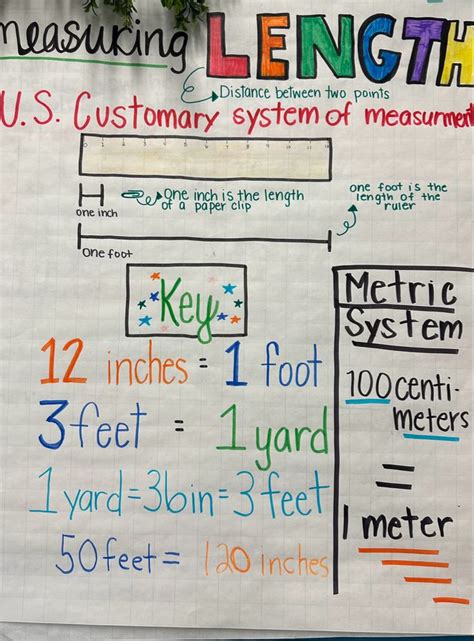 measuring LENGTH
Distance between two points
U.S. Customary system of measurment
0 1 2 3 4 5 6 7 8 9 10 11 12
one inch
One inch is the length
of a paper clip
one foot is the
length of the
ruler
One foot
Key
12 inches = 1 foot
3 feet = 1 yard
1 yard = 36in = 3 feet
50 feet = 120 inches
Metric
System
100 centi-
meters
=
1 meter